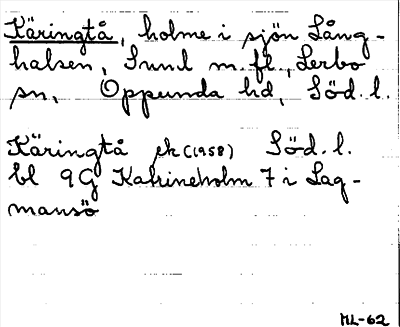 Käringtå, holme i sjön Lång-
halsen, Sund m. fl., Lerbo
sn, Oppunda hd, Söd. l.
Käringtå ek (1958) Söd. l.
bl 9G Katrineholm 7 i Lag-
mansö
ML-62